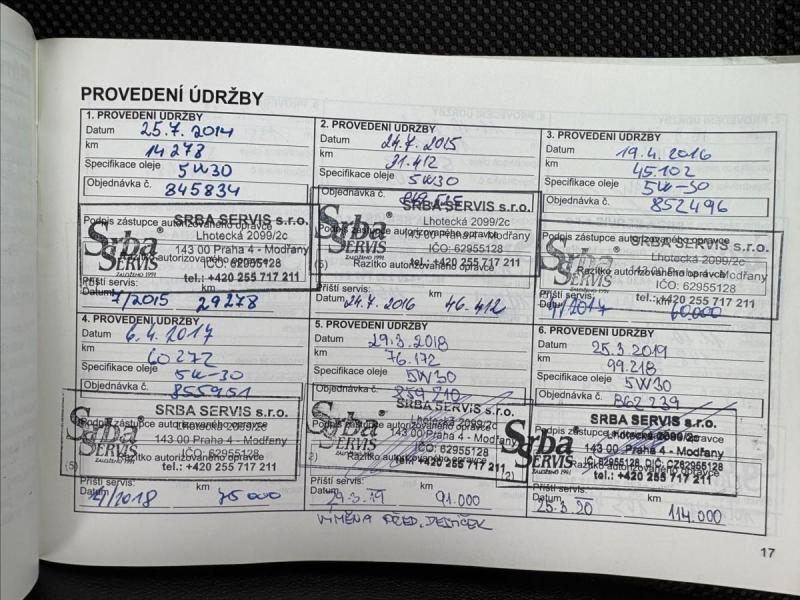 PROVEDENÍ ÚDRŽBY
1. PROVEDENÍ ÚDRŽBY
Datum 25.7.2014
km 14 278
Specifikace oleje 5W30
Objednávka č. 845834
Podpis zástupce autorizovaného opravce
Srba SERVIS
ZALOŽENO 1991
SRBA SERVIS s.r.o.
Lhotecká 2099/2c
143 00 Praha 4 - Modřany
IČO: 62955128
tel.: +420 255 717 211
Razítko autorizovaného opravce
Příští servis:
Datum 7/2015 29278
2. PROVEDENÍ ÚDRŽBY
Datum 24.7.2015
km 31.412
Specifikace oleje 5W30
Objednávka č.
Podpis zástupce autorizovaného opravce
Srba SERVIS
ZALOŽENO 1991
SRBA SERVIS s.r.o.
Lhotecká 2099/2c
143 00 Praha 4 - Modřany
IČO: 62955128
tel.: +420 255 717 211
(5) Razítko autorizovaného opravce
Příští servis:
Datum 24.7.2016 km 46.412
3. PROVEDENÍ ÚDRŽBY
Datum 19.4.2016
km 45.102
Specifikace oleje 5W-30
Objednávka č. 852496
Podpis zástupce autorizovaného opravce
Srba SERVIS
ZALOŽENO 1991
SRBA SERVIS s.r.o.
Lhotecká 2099/2c
143 00 Praha 4 - Modřany
IČO: 62955128
tel.: +420 255 717 211
Razítko autorizovaného opravce
Příští servis:
4/2017 60.000
4. PROVEDENÍ ÚDRŽBY
Datum 6.4.2017
km 60272
Specifikace oleje 5W-30
Objednávka č. 855951
Podpis zástupce autorizovaného opravce
Srba SERVIS
ZALOŽENO 1991
SRBA SERVIS s.r.o.
Lhotecká 2099/2c
143 00 Praha 4 - Modřany
IČO: 62955128
tel.: +420 255 717 211
(5) Razítko autorizovaného opravce
Příští servis:
Datum 4/2018 km 75000
5. PROVEDENÍ ÚDRŽBY
Datum 29.3.2018
km 76.172
Specifikace oleje 5W30
Objednávka č. 859210
Podpis zástupce autorizovaného opravce
Srba SERVIS
SRBA SERVIS s.r.o.
Lhotecká 2099/2c
143 00 Praha 4 - Modřany
IČO: 62955128
tel.: +420 255 717 211
Razítko autorizovaného opravce
Příští servis:
Datum 29.3.19 km 91.000
VÝMĚNA PŘED. DESTIČEK
6. PROVEDENÍ ÚDRŽBY
Datum 25.3.2019
km 99.218
Specifikace oleje 5W30
Objednávka č. 862239
Podpis zástupce autorizovaného opravce
Srba SERVIS
ZALOŽENO 1991
SRBA SERVIS s.r.o.
Lhotecká 2099/2c
143 00 Praha 4 - Modřany
IČ: 62955128 DIČ: CZ62955128
tel.: +420 255 717 211
Razítko autorizovaného opravce
Příští servis:
Datum 25.3.20 km 114.000
17